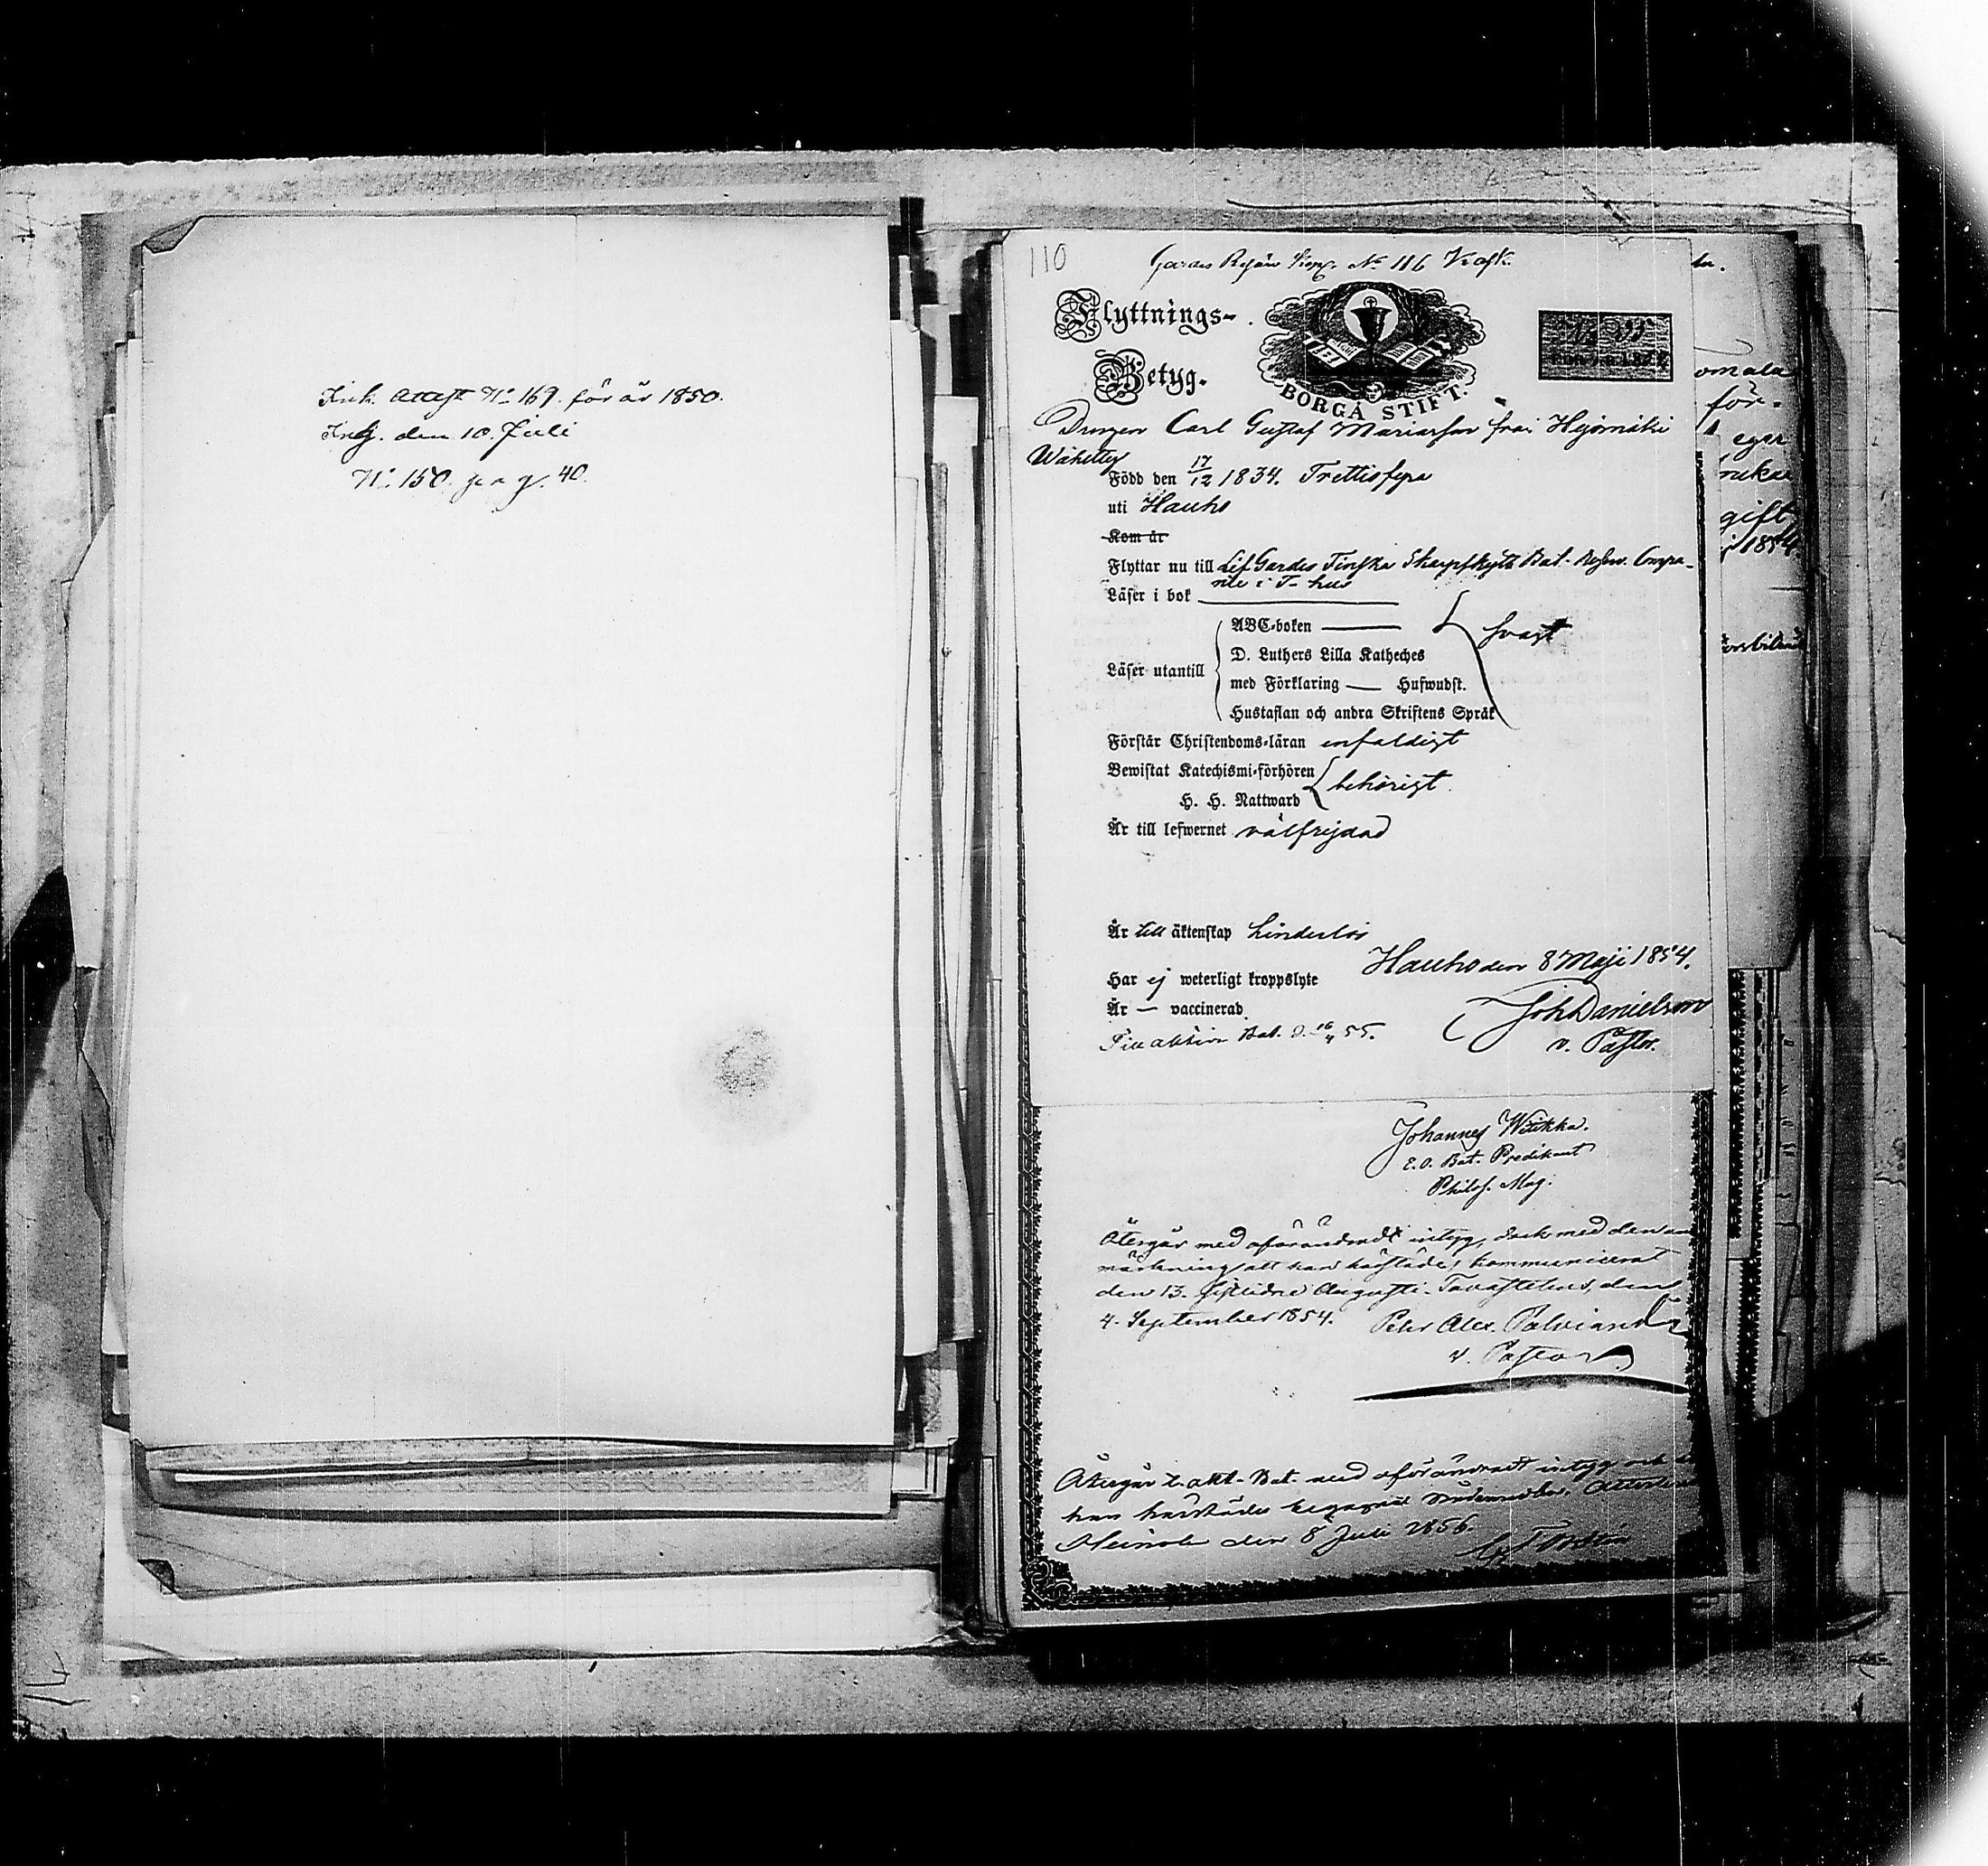 Ink. Attest No 169. för år 1850.
Ing. den 10. Juli
No 150. pag. 40.
110
Gardes No 116
Flyttnings-
Betyg.
BORGÅ STIFT.
Drengen Carl Gustaf Mariasson från
Född den 17/12 1834. Trettiofyra
uti Hauho
Kom år
Flyttar nu till Lif Gardes Finska Skarpskytte Bat. Reserv. Compa-
nie i T-hus
Läser i bok
ABC-boken
svagt
D. Luthers Lilla Katheches
Läser utantill
med Förklaring — Hufwudst.
Hustaflan och andra Skriftens Språk
Förstår Christendoms-läran enfaldigt
Bewistat Katechismi-förhören
behörigt
H. H. Nattward
Är till lefwernet välfrejdad
Är till äktenskap hinderlös
Hauho den 8 Maji 1854.
Har ej weterligt kroppslyte
Är — vaccinerad
Joh Danielson
v. Pastor.
Till Bat. d. 16/4 55.
Johannes
E. O. Bat. Predikant
Philos. Mag.
Återgår med oförändradt intyg, dock med den an-
märkning att han härstädes kommunicerat
den 13. sistlidne Augusti. Tavastehus, den
4. September 1854. Petr Alex.
v. Pastor
Återgår t. akt. Bat. med oförändradt intyg och
han härstädes begagnat
Heinola den 8 Juli 1856.
omala
för-
eger
gift
1854